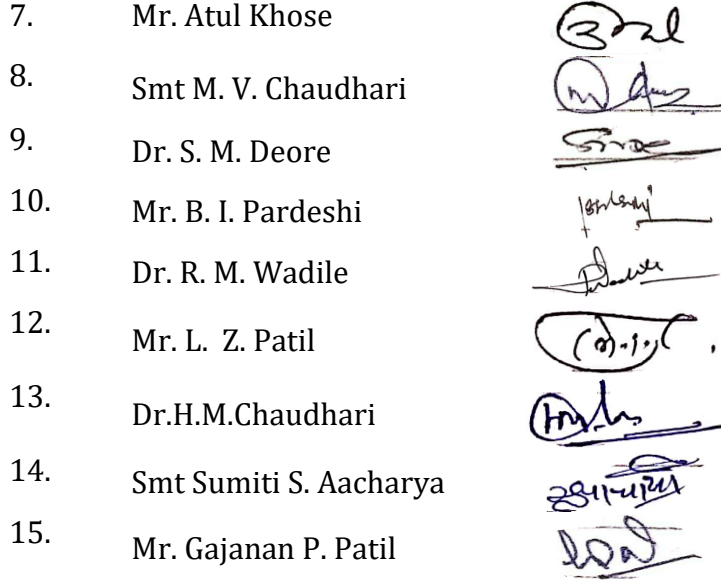 7. Mr. Atul Khose
8. Smt M. V. Chaudhari
9. Dr. S. M. Deore
10. Mr. B. I. Pardeshi
11. Dr. R. M. Wadile
12. Mr. L. Z. Patil
13. Dr.H.M.Chaudhari
14. Smt Sumiti S. Aacharya
15. Mr. Gajanan P. Patil